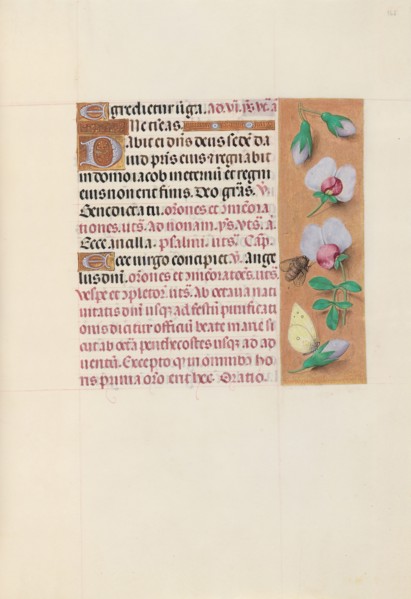 Egredietur virga. ad. vi. ps. vt. a.
Ne timeas.
Dabit ei dns deus sede da
uid pris eius z regnabit
in domo iacob in eternu et regni
eius non erit finis. Deo gras. v.
Benedicta tu. orones et memora
tiones. vts. ad nonam. ps. vts. a.
Ecce ancilla. psalmi. vts. Cap.
Ecce virgo concipiet. v. ange
lus dni. orones et memoratoes. vts.
vespe et completor. vts. Ab octaua nati
uitatis dni vsqz ad festu purificati
onis dicitur officiu beate marie si
cut ab octa penthecostes vsqz ad ad
uentu. Excepto q in omnibz ho
ris primia oro erit hec. Oratio.